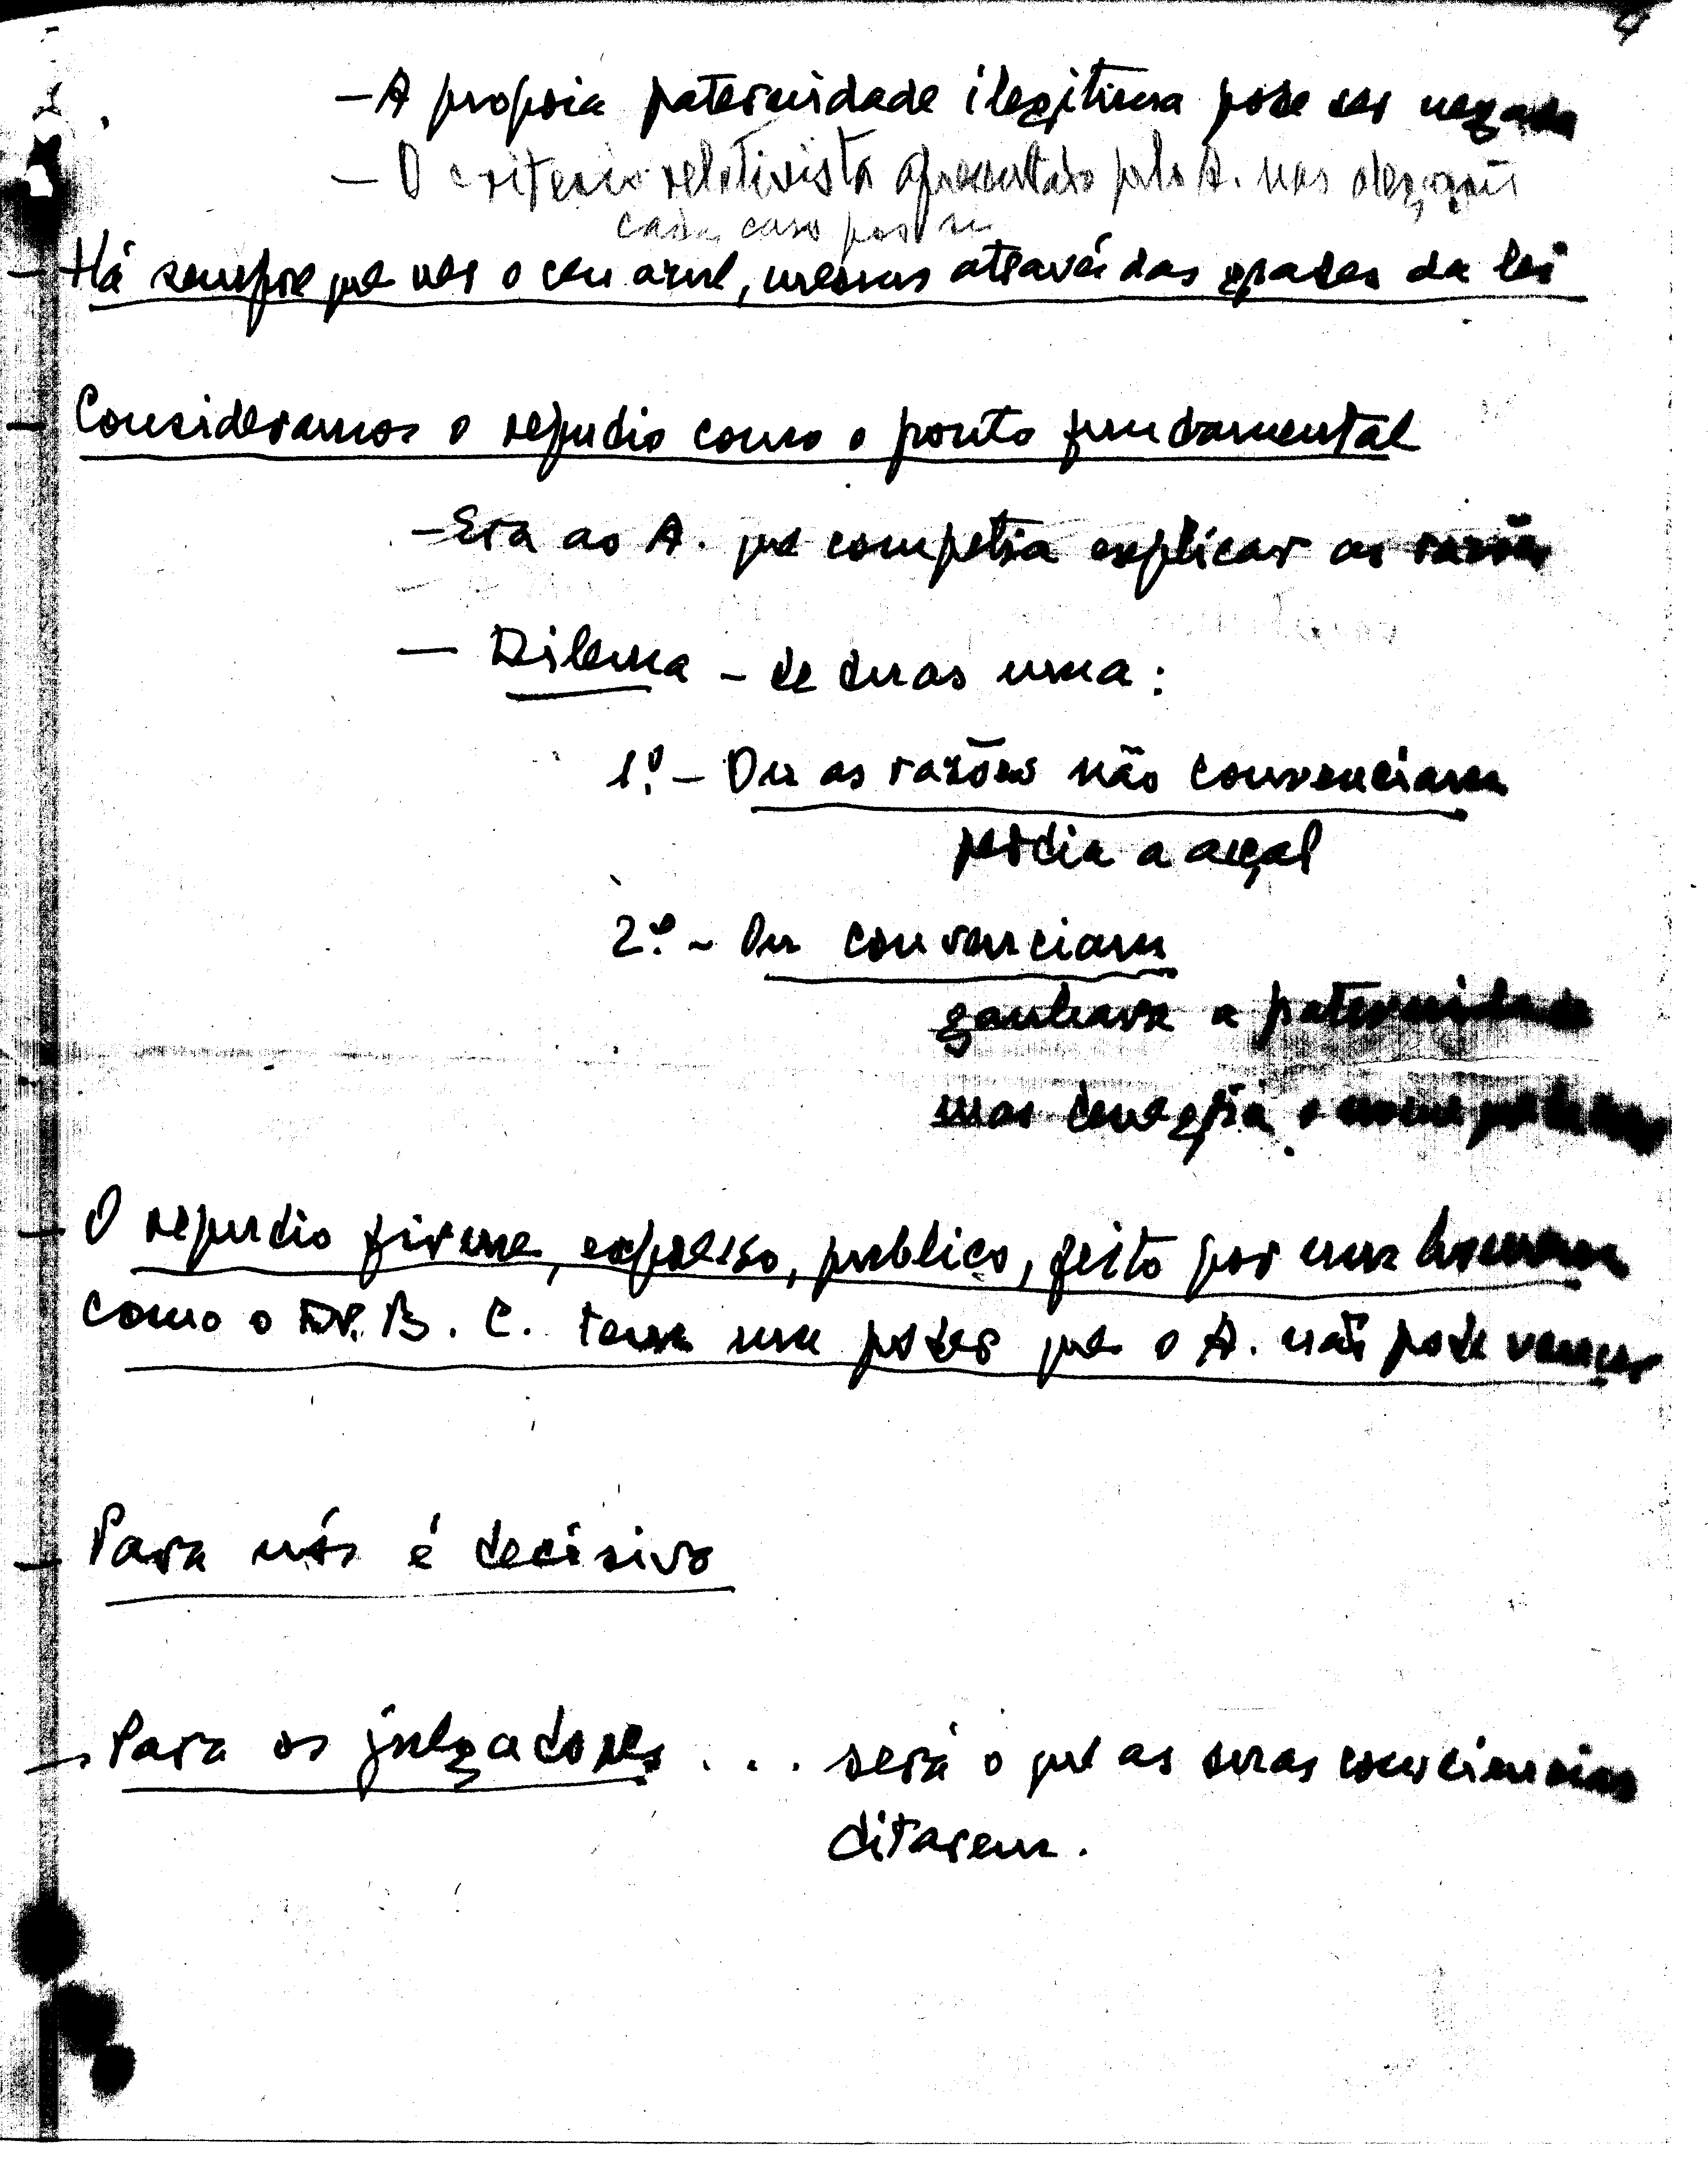 4
— A propria paternidade ilegitima pode ser negada
— O criterio relativista apresentado pelo A. nas alegações
cada caso por si
— Há sempre que ver o ceu azul, mesmo através das grades da lei
— Consideramos o repudio como o ponto fundamental
— Era ao A. que competia explicar as razões
— Dilema – de duas uma:
1.º – Ou as razões não convenciam
perdia a acção
2.º – Ou convenciam
ganhava a paternidade
mas denegria o nome
— O repudio firme, expresso, publico, feito por um homem
como o Dr. B. C. tem um poder que o A. não pode vencer
— Para nós é decisivo
— Para os julgadores . . . será o que as suas consciencias
ditarem.